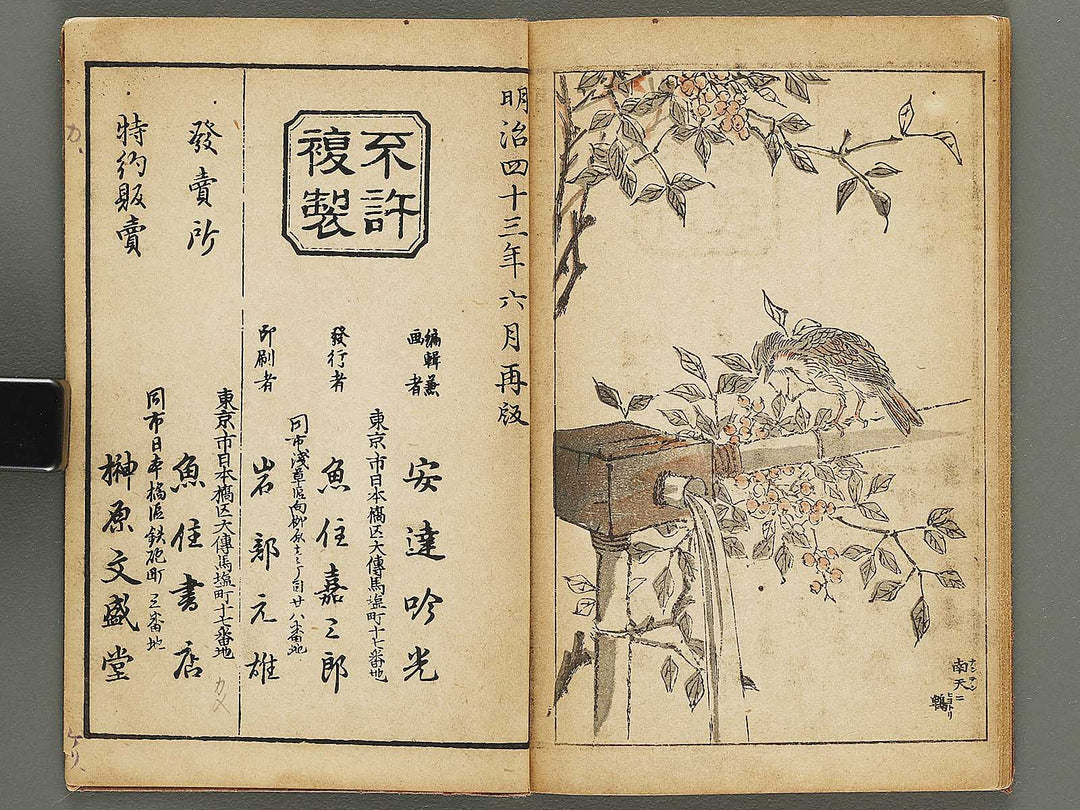 南天ニ
ナンテン
鵯
ヒヨトリ
明治四十三年六月再版
不許
複製
編輯兼
画者
安達吟光
東京市日本橋区大傳馬塩町十七番地
發行者
魚住嘉三郎
印刷者
岩部元雄
東京市日本橋区大傳馬塩町十七番地
發賣所
魚住書店
同市日本橋區鉄砲町三番地
特約販賣
榊原文盛堂